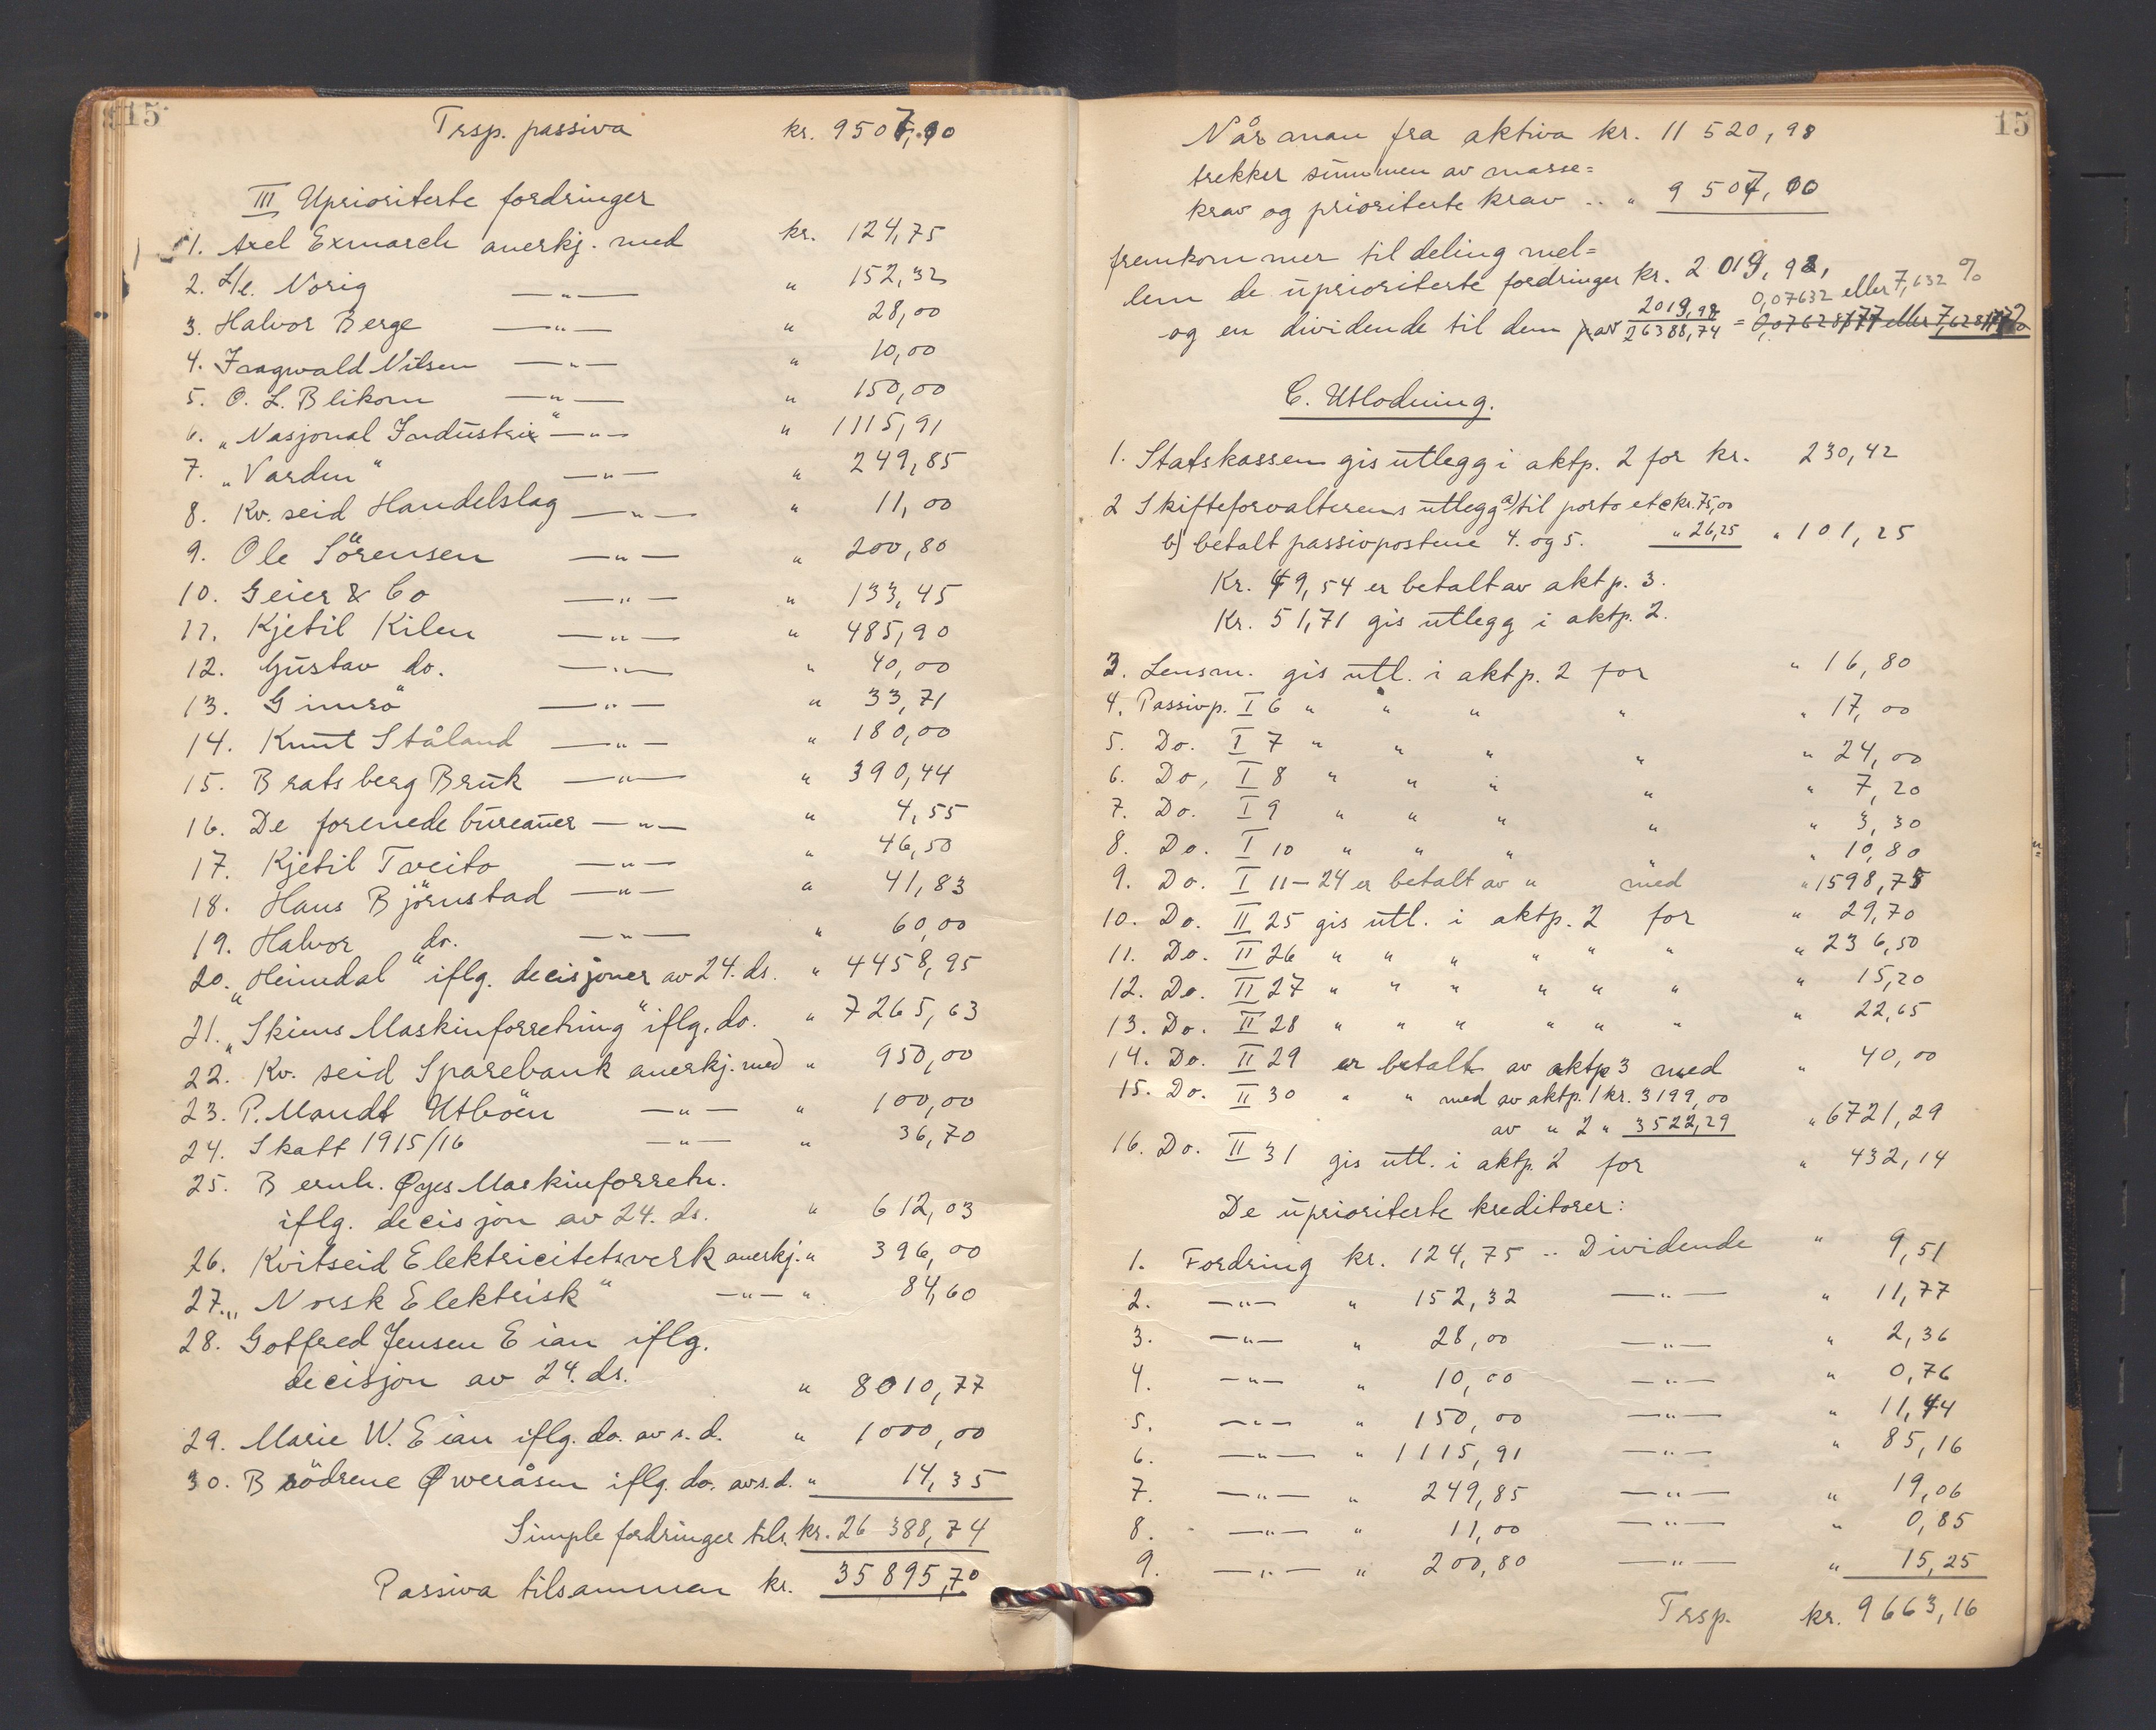 15
Trsp. passiva kr. 9507,00
III Uprioriterte fordringer
1. Axel Exmarch anerkj. med kr. 124,75
2. L/e. Norig —„— „ 152,32
3. Halvor Berge —„— „ 28,00
4. Ingwald Nilsen —„— „ 10,00
5. O. L. Blikom —„— „ 150,00
6. „Nasjonal Industri" —„— „ 1115,91
7. „Varden" —„— „ 249,85
8. Kv.seid Handelslag —„— „ 11,00
9. Ole Sörensen —„— „ 200,80
10. Geier & Co —„— „ 133,45
11. Kjetil Kilen —„— „ 485,90
12. Gustav do. —„— „ 40,00
13. Gimsö —„— „ 33,71
14. Knut Ståland —„— „ 180,00
15. Bratsberg Bruk —„— „ 390,44
16. De forenede bureauer —„— „ 4,55
17. Kjetil Tveito —„— „ 46,50
18. Hans Björnstad —„— „ 41,83
19. Halvor do. —„— „ 60,00
20. „Heimdal" iflg. decisjoner av 24. ds. „ 4458,95
21. „Skiens Maskinforretning" iflg. do. „ 7265,63
22. Kv. seid Sparebank anerkj. med „ 950,00
23. P. Mandt Utböen —„— „ 100,00
24. Skatt 1915/16 —„— „ 36,70
25. Bernh. Øyes Maskinforretn.
iflg. decisjon av 24. ds. „ 612,03
26. Kvitseid Elektricitetsverk anerkj. „ 396,00
27. „Norsk Elektrisk" —„— „ 84,60
28. Gotfred Jensen Eian iflg.
decisjon av 24. ds. „ 8010,77
29. Marie W. Eian iflg. do. av s. d. „ 1000,00
30. Brödrene Øweråsen iflg. do. av s. d. „ 14,35
Simple fordringer tils. kr. 26 388,74
Passiva tilsammen kr. 35895,70
15
Når man fra aktiva kr. 11 520,98
trekker summen av masse=
krav og prioriterte krav .. „ 9 507,00
fremkommer til deling mel=
lem de uprioriterte fordringer kr. 2 019,98,
0,07632 eller 7,632 %
og en dividende til dem pav 2019,98/26388,74 = 0,07628177 eller 7,628177%
C. Utlodning.
1. Statskassen gis utlegg i aktp. 2 for kr. 230,42
2 Skifteforvalterens utlegg a) til porto etc kr. 75,00
b) betalt passivpostene 4. og 5. „ 26,25 „ 101,25
Kr. 49,54 er betalt av aktp. 3.
Kr. 51,71 gis utlegg i aktp. 2.
3. Lensm. gis utl. i aktp. 2 for „ 16,80
4. Passivp. I 6 „ „ „ „ „ 17,00
5. Do. I 7 „ „ „ „ „ 24,00
6. Do. I 8 „ „ „ „ „ 7,20
7. Do. I 9 „ „ „ „ „ 3,30
8. Do. I 10 „ „ „ „ 10,80
9. Do. I 11–24 er betalt av „ med „ 1598,75
10. Do. II 25 gis utl. i aktp. 2 for „ 29,70
11. Do. II 26 „ „ „ „ „ „ „ 236,50
12. Do. II 27 „ „ „ „ „ „ „ 15,20
13. Do. II 28 „ „ „ „ „ „ „ 22,65
14. Do. II 29 er betalt av aktp 3 med „ 40,00
15. Do. II 30 „ „ med av aktp. 1 kr. 3199,00
av „ 2 „ 3522,29 „ 6721,29
16. Do. II 31 gis utl. i aktp. 2 for „ 432,14
De uprioriterte kreditorer:
1. Fordring kr. 124,75 .. Dividende „ 9,51
2. —„— „ 152,32 —„— „ 11,77
3. —„— „ 28,00 —„— „ 2,36
4. —„— „ 10,00 —„— „ 0,76
5. —„— „ 150,00 —„— „ 11,44
6. —„— „ 1115,91 —„— „ 85,16
7. —„— „ 249,85 —„— „ 19,06
8. —„— „ 11,00 —„— „ 0,85
9. —„— „ 200,80 —„— „ 15,25
Trsp. kr. 9663,16